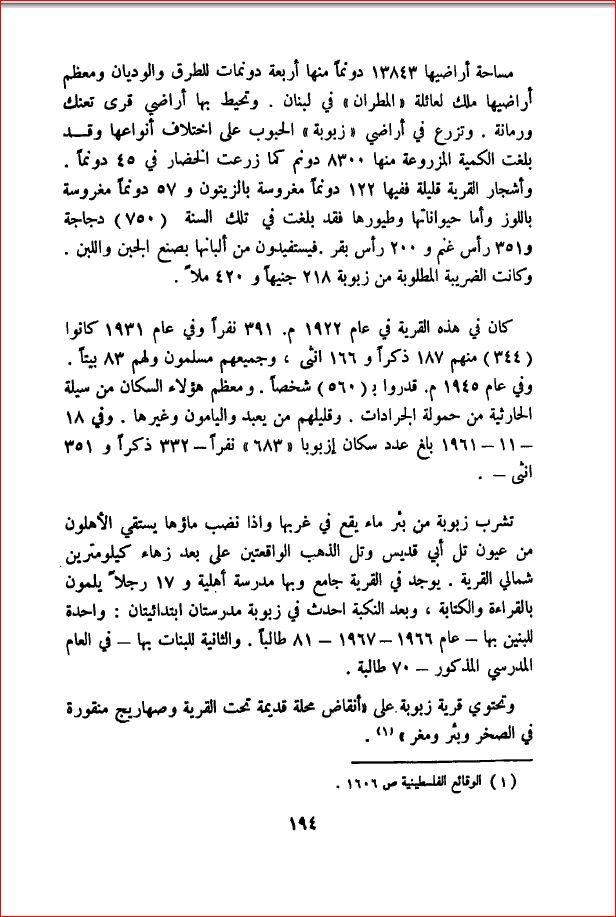 مساحة أراضيها ١٣٨٤٣ دونماً منها أربعة دونمات للطرق والوديان ومعظم
أراضيها ملك لعائلة «المطران» في لبنان . وتحيط بها أراضي قرى تعنك
ورمانة . وتزرع في أراضي « زبوبة » الحبوب على اختلاف أنواعها وقـــد
بلغت الكمية المزروعة منها ٨٣٠٠ دونم كما زرعت الخضار في ٤٥ دونماً .
وأشجار القرية قليلة ففيها ١٢٢ دونماً مغروسة بالزيتون و ٥٧ دونماً مغروسة
باللوز وأما حيواناتها وطيورها فقد بلغت في تلك السنة (٧٥٠) دجاجة
و٣٥١ رأس غنم و ٢٠٠ رأس بقر .فيستفيدون من ألبانها بصنع الجبن واللبن .
وكانت الضريبة المطلوبة من زبوبة ٢١٨ جنيهاً و ٤٢٠ ملاً .
كان في هذه القرية في عام ١٩٢٢ م. ٣٩١ نفراً وفي عام ١٩٣١ كانوا
(٣٤٤) منهم ١٨٧ ذكراً و ١٦٦ انثى ، وجميعهم مسلمون ولهم ٨٣ بيتاً .
وفي عام ١٩٤٥ م. قدروا بـ (٥٦٠) شخصاً . ومعظم هؤلاء السكان من سيلة
الحارثية من حمولة الجرادات . وقليلهم من يعبد واليامون وغيرها . وفي ١٨
– ١١ – ١٩٦١ بلغ عدد سكان إزبوبا «٦٨٣» نفراً – ٣٣٢ ذكراً و ٣٥١
انثى – .
تشرب زبوبة من بئر ماء يقع في غربها واذا نضب ماؤها يستقي الأهلون
من عيون تل أبي قديس وتل الذهب الواقعتين على بعد زهاء كيلومترين
شمالي القرية . يوجد في القرية جامع وبها مدرسة أهلية و ١٧ رجلاً يلمون
بالقراءة والكتابة ، وبعد النكبة احدث في زبوبة مدرستان ابتدائيتان : واحدة
للبنين بها – عام ١٩٦٦ – ١٩٦٧ – ٨١ طالباً . والثانية للبنات بها – في العام
المدرسي المذكور – ٧٠ طالبة .
وتحتوي قرية زبوبة على «أنقاض محلة قديمة تحت القرية وصهاريج منقورة
في الصخر وبئر ومغر » (١) .
(١) الوقائع الفلسطينية ص ١٦٠٦ .
١٩٤